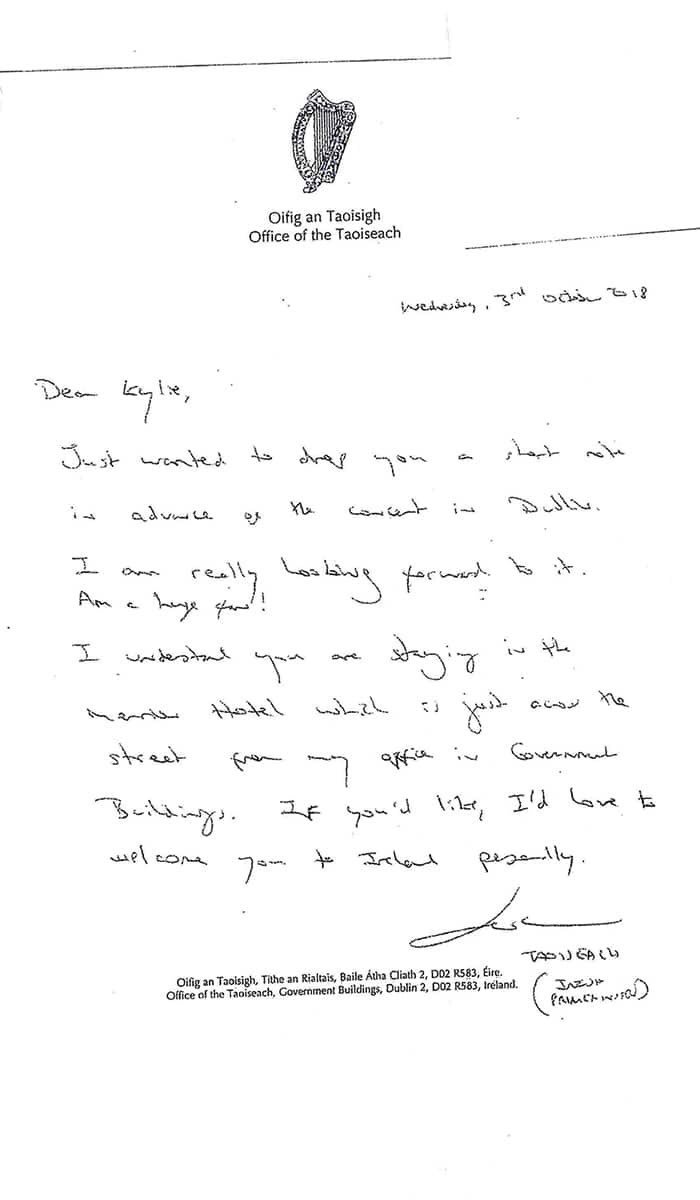 Oifig an Taoisigh
Office of the Taoiseach
Wednesday, 3rd October 2018
Dear Kylie,
Just wanted to drop you a short note
in advance of the concert in Dublin.
I am really looking forward to it.
Am a huge fan!
I understand you are staying in the
Merrion Hotel which is just across the
street from my office in Government
Buildings. If you'd like, I'd love to
welcome you to Ireland personally.
TAOISEACH
(IRISH
PRIME MINISTER)
Oifig an Taoisigh, Tithe an Rialtais, Baile Átha Cliath 2, D02 R583, Éire.
Office of the Taoiseach, Government Buildings, Dublin 2, D02 R583, Ireland.